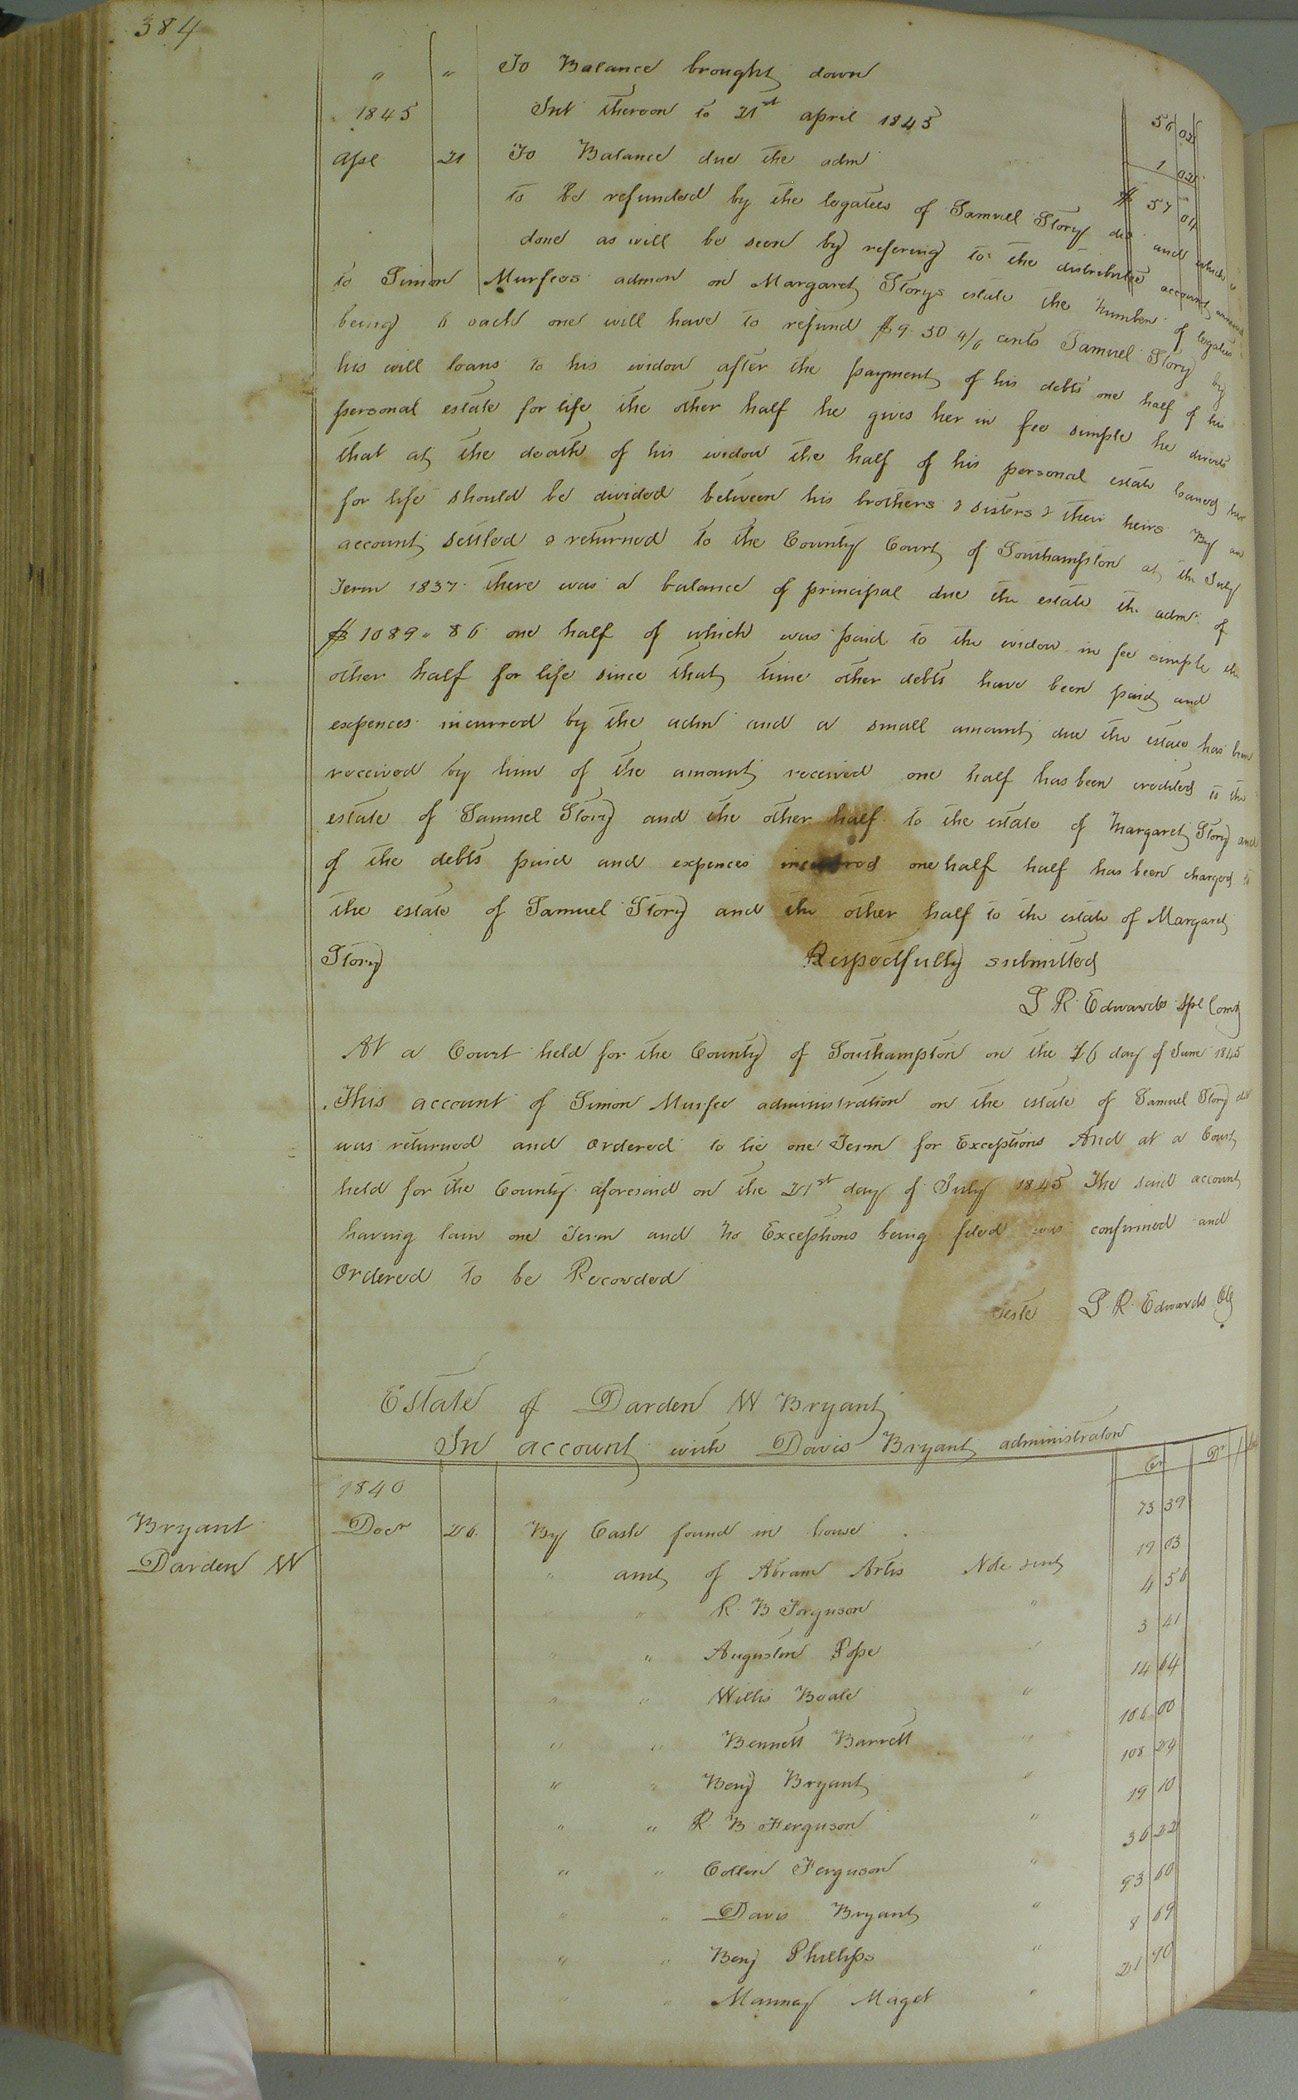 384
" " To Balance brought down 56 02
1845 Int thereon to 21st april 1845 1 02
Apl 21 To Balance due the adm $ 57 04
to be refunded by the legatees of Samuel Story dec and which is
done as will be seen by refering to the distributee account annexed
to Simon Murfees admon on Margaret Storys estate the number of legatees
being 6 each one will have to refund $9.50 4/6 cents Samuel Story by
his will loans to his widow after the payment of his debts one half of his
personal estate for life the other half he gives her in fee simple he directs
that at the death of his widow the half of his personal estate loaned her
for life should be divided between his brothers & sisters & their heirs By an
account settled & returned to the County Court of Southampton at the July
Term 1837 there was a balance of principal due the estate the admr of
$1089.86 one half of which was paid to the widow in fee simple the
other half for life since that time other debts have been paid and
expences incurred by the adm and a small amount due the estate has been
received by him of the amount received one half has been credited to the
estate of Samuel Story and the other half to the estate of Margaret Story and
of the debts paid and expences incurred one half half has been charged to
the estate of Samuel Story and the other half to the estate of Margaret
Story Respectfully submitted
L R Edwards Spl Comr
At a Court held for the County of Southampton on the 16 day of June 1845
This account of Simon Murfee administration on the estate of Samuel Story dec
was returned and ordered to lie one Term for Exceptions And at a Court
held for the County aforesaid on the 21st day of July 1845 The said account
having lain one Term and no Exceptions being filed was confirmed and
Ordered to be Recorded
Teste L. R. Edwards Clk
Estate of Darden W Bryant
In account with Davis Bryant administrator
Cr Dr
1840
Bryant
Darden W
Decr 26 By Cash found in house 73 39
" amt of Abram Artis Note & int 19 03
" " R B Forguson " 4 56
" " Augustin Pope " 3 41
" " Willis Beale " 14 64
" " Bennett Barrett " 106 00
" " Benj Bryant " 108 24
" " R B Ferguson " 19 10
" " Collin Ferguson " 36 22
" " Davis Bryant " 93 60
" " Benj Phillips " 8 69
" " Manny Maget " 21 90